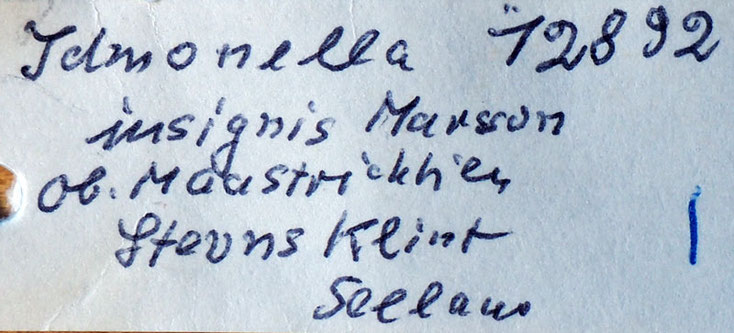 Idmonella 12892
insignis Marsson
Ob. Maastrichtien
Stevns Klint
Seeland